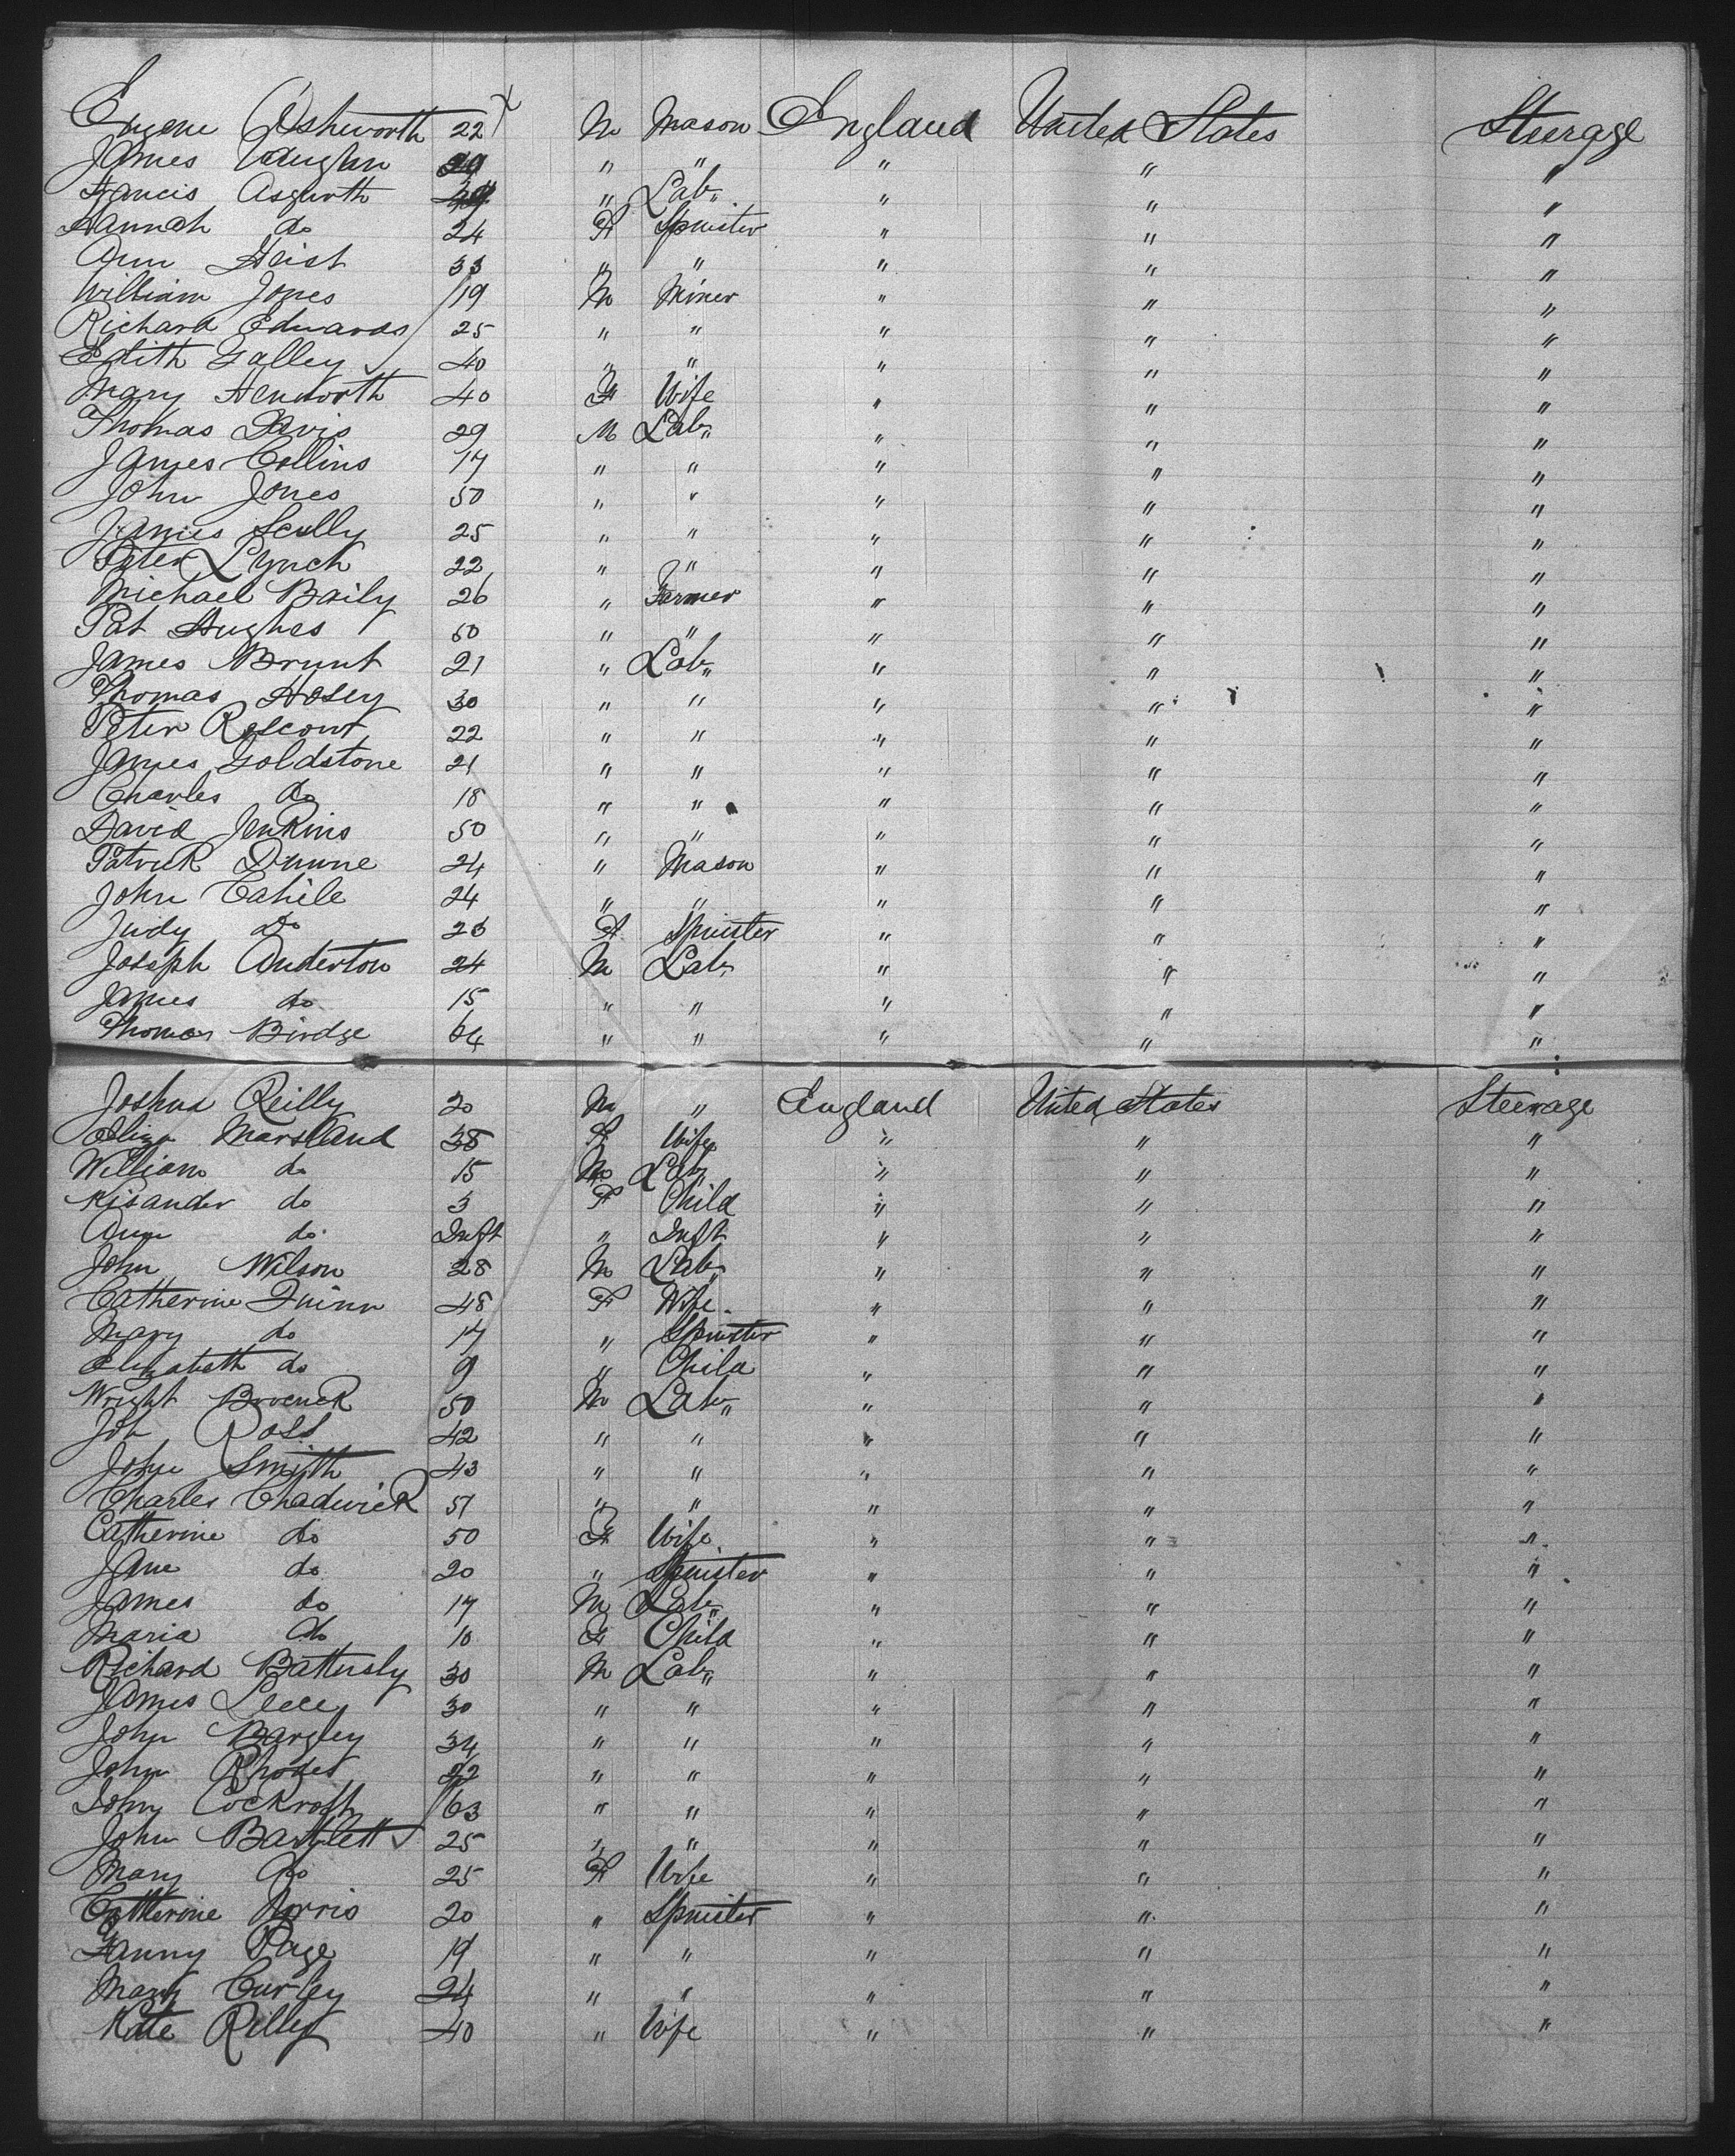 Eugene Ashworth 22 M Mason England United States Steerage
James Vaughn 29 " " " " "
Francis Asgurth " Lab" " " "
Hannah do 24 F Spinster " " "
Ann Heist 33 " " " " "
William Jones 19 M Miner " " "
Richard Edwards 25 " " " " "
Edith Galley 40 " " " " "
Mary Henworth 40 F Wife " " "
Thomas Davis 29 M Lab" " " "
James Collins 17 " " " " "
John Jones 50 " " " " "
James Scully 25 " " " " "
Peter Lynch 22 " " " " "
Michael Baily 26 " Farmer " " "
Pat Hughes 50 " " " " "
James Brunt 21 " Lab" " " "
Thomas Hosey 30 " " " " "
Peter Roscow 22 " " " " "
James Goldstone 21 " " " " "
Charles do 18 " " " " "
David Jenkins 50 " " " " "
Patrick Dunne 24 " Mason " " "
John Cahile 24 " " " " "
Judy do 26 F Spinster " " "
Joseph Anderton 24 M Lab" " " "
James do 15 " " " " "
Thomas Birdge 64 " " " " "
Joshua Reilly 20 M " England United States Steerage
Eliza Marsland 38 F Wife " " "
William do 15 M Lab" " " "
Kisander do 3 F Child " " "
Ann do Inft " Inft " " "
John Wilson 28 M Lab" " " "
Catherine Quinn 48 F Wife " " "
Mary do 17 " Spinster " " "
Elizabeth do 9 " Child " " "
Wright Brocnck 50 M Lab" " " "
Joh Ross 42 " " " " "
John Smith 43 " " " " "
Charles Chadwick 51 " " " " "
Catherine do 50 F Wife " " "
Jane do 20 " Spinster " " "
James do 17 M Lab" " " "
Maria do 10 F Child " " "
Richard Battersly 30 M Lab" " " "
James Leecy 30 " " " " "
John Bargley 34 " " " " "
John Rhodes 22 " " " " "
John Cockroft 63 " " " " "
John Bartlett 25 " " " " "
Mary do 25 F Wife " " "
Catherine Norris 20 " Spinster " " "
Fanny Page 19 " " " " "
Mary Curley 24 " " " " "
Kate Rilley 40 " Wife " " "